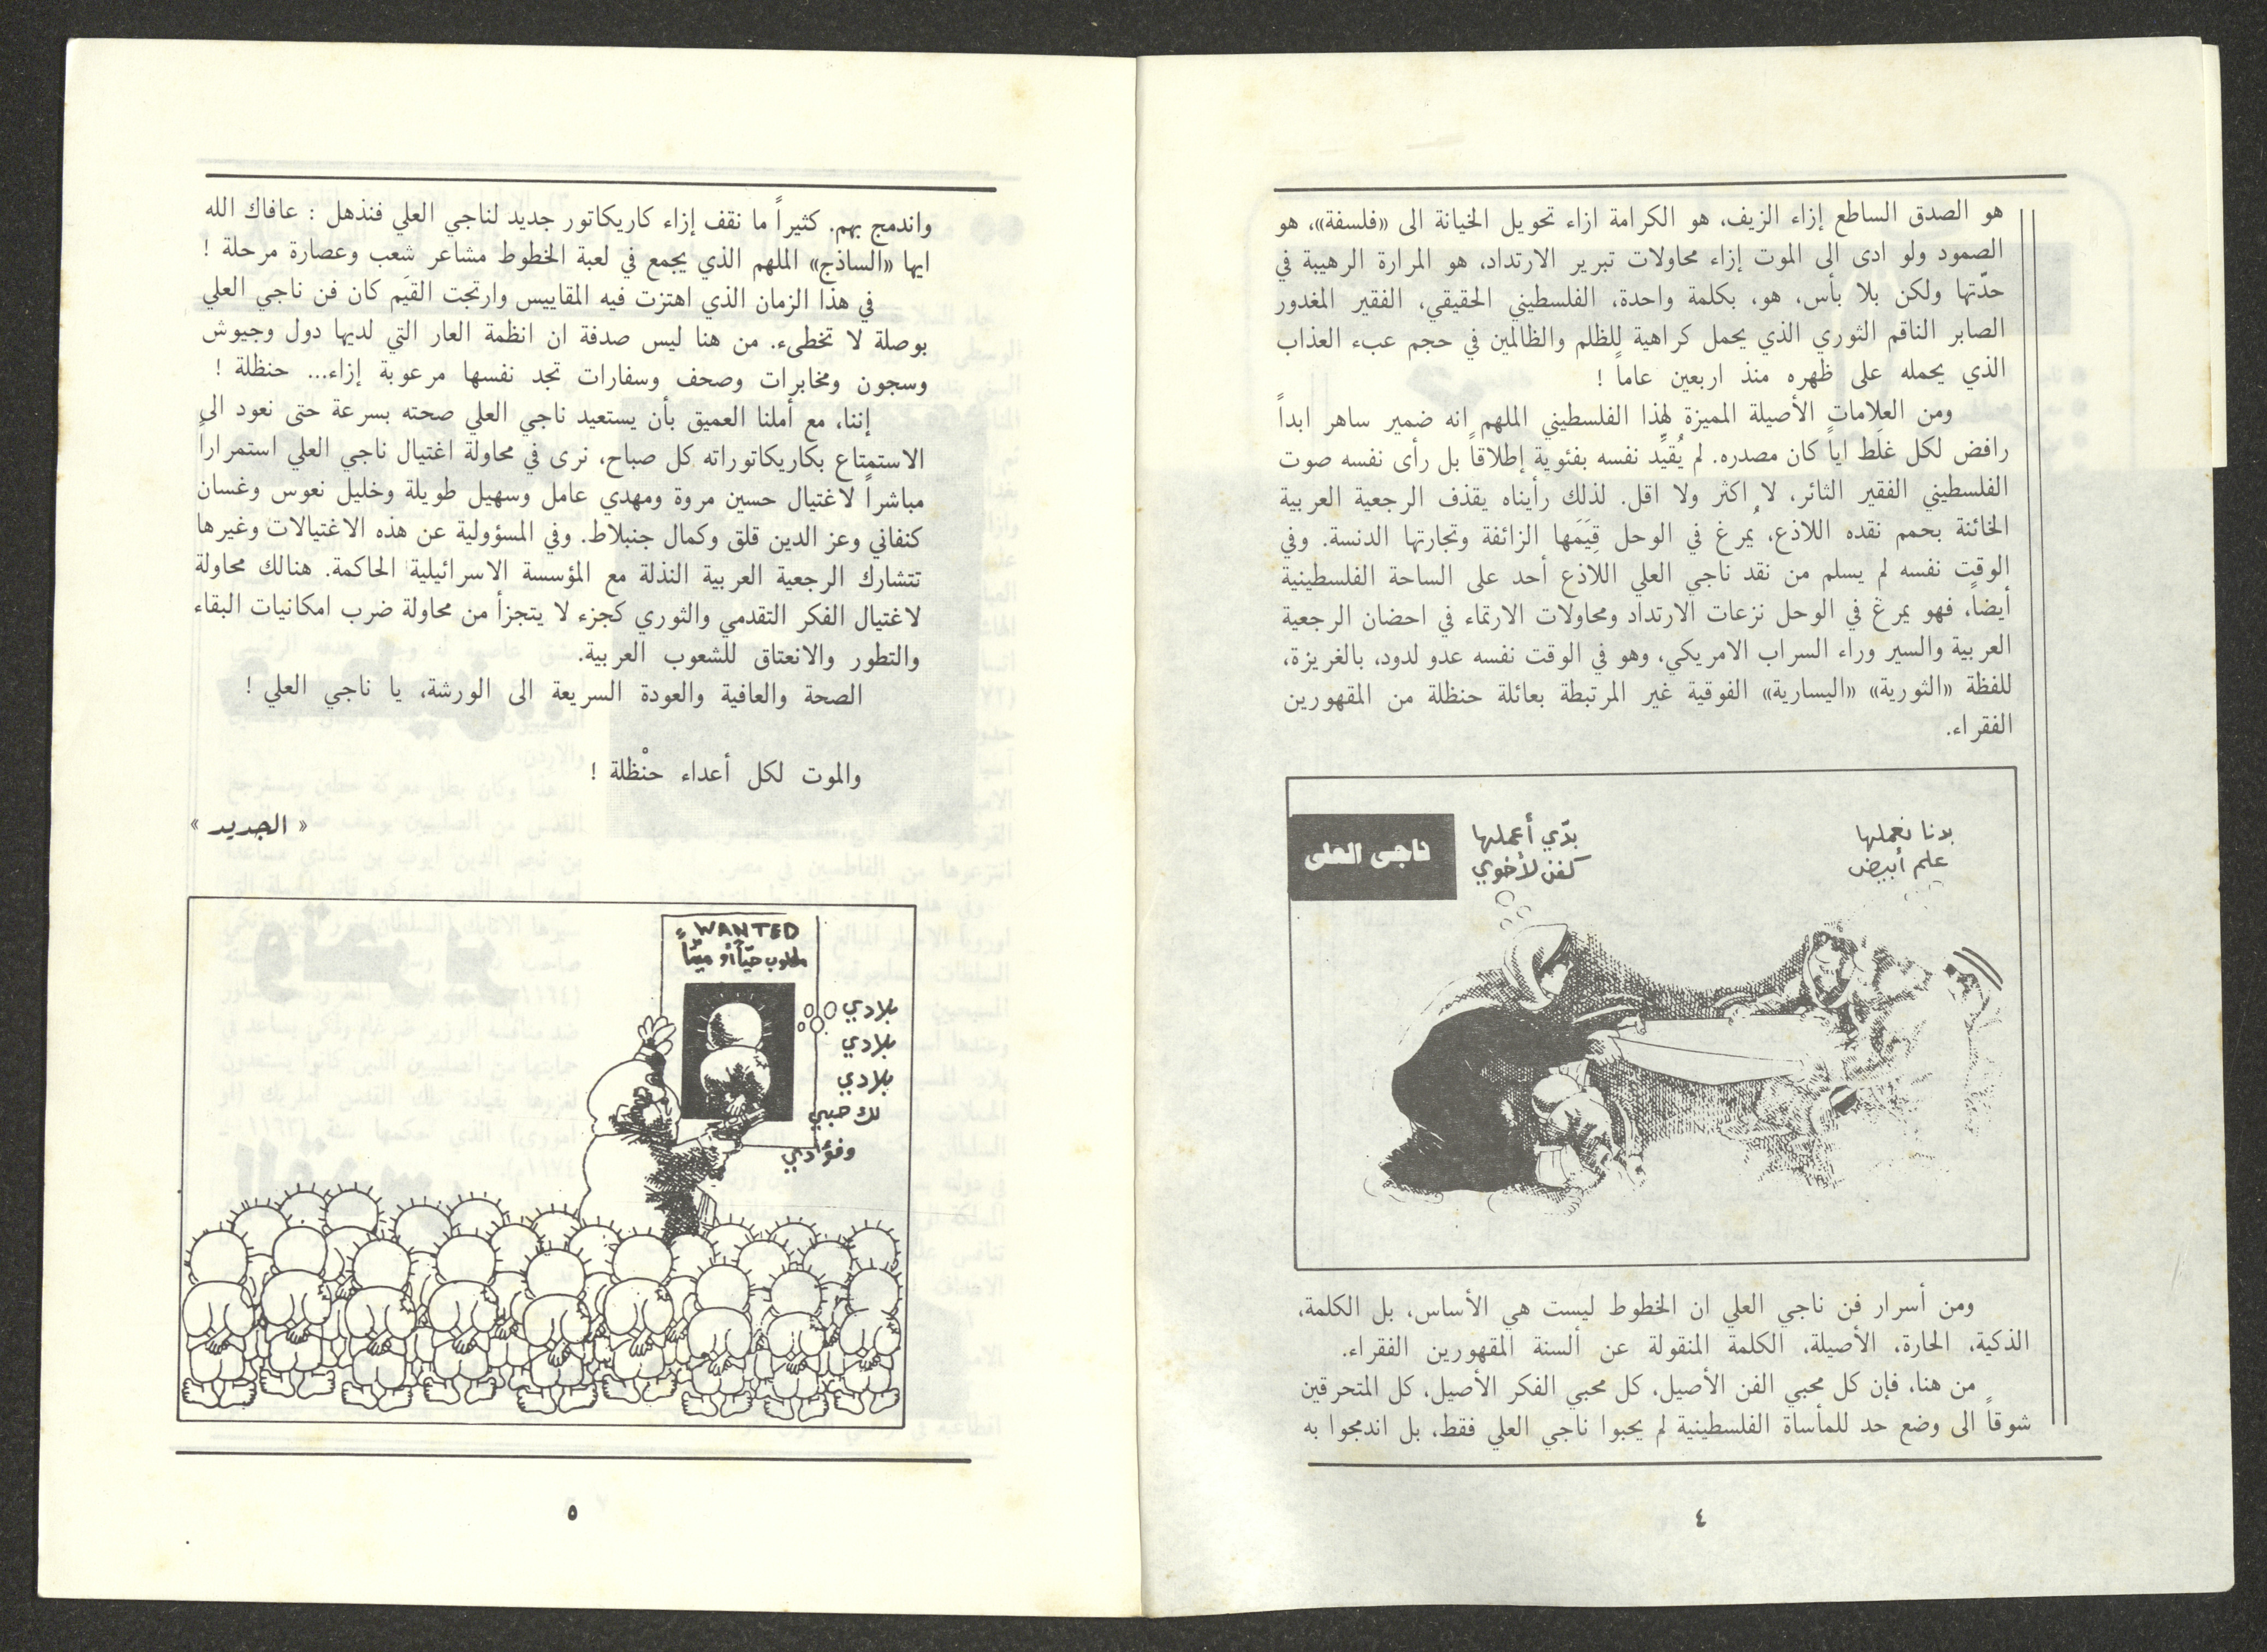 هو الصدق الساطع إزاء الزيف، هو الكرامة ازاء تحويل الخيانة الى «فلسفة»، هو
الصمود ولو ادى الى الموت إزاء محاولات تبرير الارتداد، هو المرارة الرهيبة في
حدّتها ولكن بلا بأس، هو، بكلمة واحدة، الفلسطيني الحقيقي، الفقير المغدور
الصابر الناقم الثوري الذي يحمل كراهية للظلم والظالمين في حجم عبء العذاب
الذي يحمله على ظهره منذ اربعين عاماً !
ومن العلامات الأصيلة المميزة لهذا الفلسطيني الملهم انه ضمير ساهر ابداً
رافض لكل غلَط اياً كان مصدره. لم يُقيِّد نفسه بفئوية إطلاقاً بل رأى نفسه صوت
الفلسطيني الفقير الثائر، لا اكثر ولا اقل. لذلك رأيناه يقذف الرجعية العربية
الخائنة بحمم نقده اللاذع، يُمرغ في الوحل قِيَمَها الزائفة وتجارتها الدنسة. وفي
الوقت نفسه لم يسلم من نقد ناجي العلي اللاذع أحد على الساحة الفلسطينية
أيضاً، فهو يمرغ في الوحل نزعات الارتداد ومحاولات الارتماء في احضان الرجعية
العربية والسير وراء السراب الامريكي، وهو في الوقت نفسه عدو لدود، بالغريزة،
للفظة «الثورية» «اليسارية» الفوقية غير المرتبطة بعائلة حنظلة من المقهورين
الفقراء.
بدنا نعملها
علم أبيض
بدّي أعملها
كفن لأخوي
ناجي العلي
ومن أسرار فن ناجي العلي ان الخطوط ليست هي الأساس، بل الكلمة،
الذكية، الحارة، الأصيلة، الكلمة المنقولة عن ألسنة المقهورين الفقراء.
من هنا، فإن كل محبي الفن الأصيل، كل محبي الفكر الأصيل، كل المتحرقين
شوقاً الى وضع حد للمأساة الفلسطينية لم يحبوا ناجي العلي فقط، بل اندمجوا به
٤
واندمج بهم. كثيراً ما نقف إزاء كاريكاتور جديد لناجي العلي فنذهل : عافاك الله
ايها «الساذج» الملهم الذي يجمع في لعبة الخطوط مشاعر شعب وعصارة مرحلة !
في هذا الزمان الذي اهتزت فيه المقاييس وارتجت القيَم كان فن ناجي العلي
بوصلة لا تخطىء. من هنا ليس صدفة ان انظمة العار التي لديها دول وجيوش
وسجون ومخابرات وصحف وسفارات تجد نفسها مرعوبة إزاء... حنظلة !
إننا، مع أملنا العميق بأن يستعيد ناجي العلي صحته بسرعة حتى نعود الى
الاستمتاع بكاريكاتوراته كل صباح، نرى في محاولة اغتيال ناجي العلي استمراراً
مباشراً لاغتيال حسين مروة ومهدي عامل وسهيل طويلة وخليل نعوس وغسان
كنفاني وعز الدين قلق وكمال جنبلاط. وفي المسؤولية عن هذه الاغتيالات وغيرها
تتشارك الرجعية العربية النذلة مع المؤسسة الاسرائيلية الحاكمة. هنالك محاولة
لاغتيال الفكر التقدمي والثوري كجزء لا يتجزأ من محاولة ضرب امكانيات البقاء
والتطور والانعتاق للشعوب العربية.
الصحة والعافية والعودة السريعة الى الورشة، يا ناجي العلي !
والموت لكل أعداء حنْظلة !
« الجديد »
WANTED
مطلوب حيّاً أو ميّتاً
بلادي
بلادي
بلادي
لك حبي
وفؤادي
٥